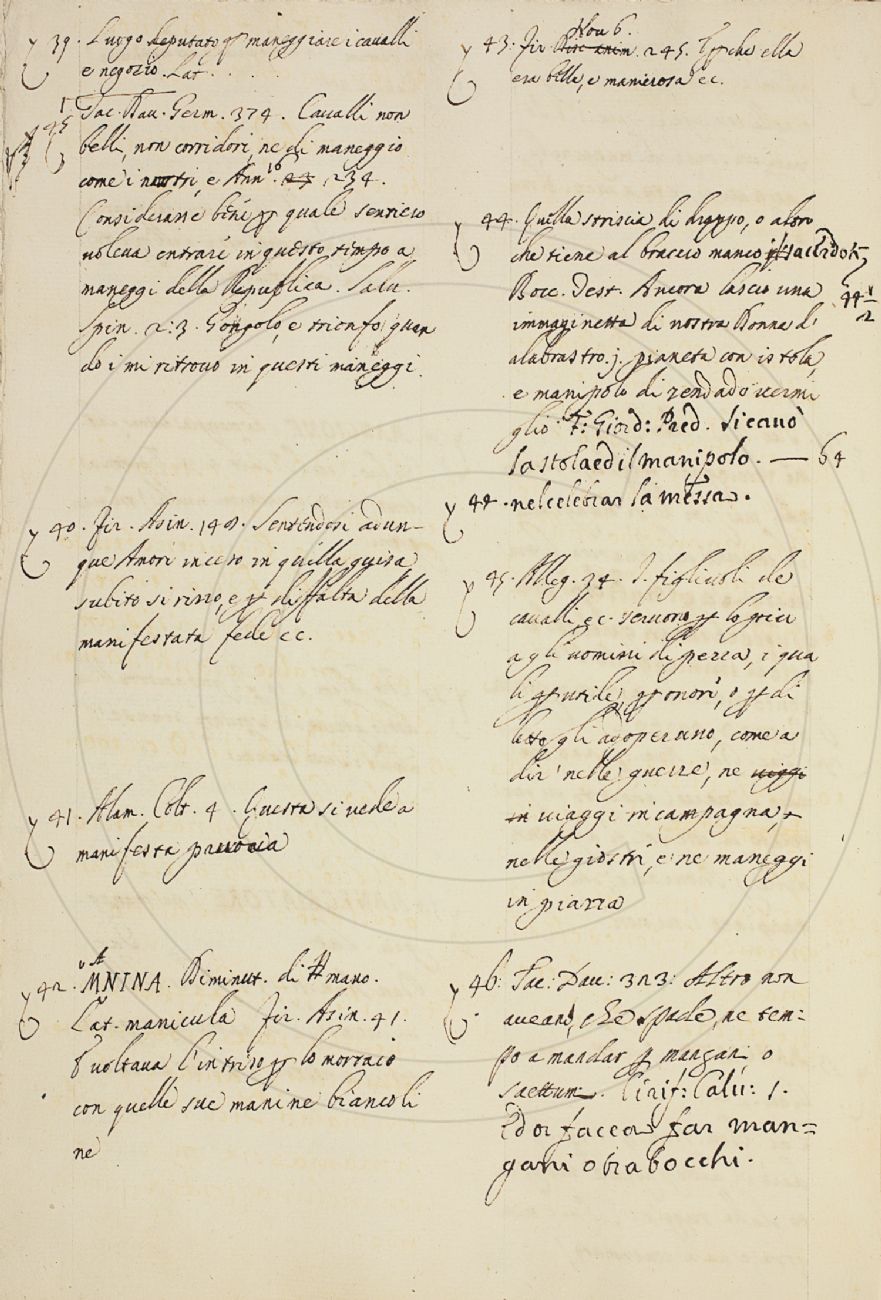 39. Luogo deputato p maneggiare i caualli
e negozio. Lat. . . .
45 Tac. Dau. Germ. 374. Caualli non
belli, non corridori, ne di maneggio
come i nostri, e Ann. 16 234.
Considerare bene p quale sentiero
uoleua entrare in questo tempo a
maneggi della Republica. Salu.
Spin. 2:3. Gongolo, e trionfo, quan
do i mi ritrouo in questi maneggi.
40. Fir. Asin. 148. Sentendosi adun-
que Amore inceso in quella guisa,
subito si rizzo, e p diffalta della
manifestata fede ec.
41. Alam. Colt. 4. Questa si uede a
manifesta
42. MANINA. Diminut. di mano.
Lat. manicula Fir. Asin. 41.
E uoltaua l'intriso p lo mortaio
con quelle sue manine biancoli
ne
43. Fir. Nou 6. 245. E p che ella
era bella, e manierosa ec.
44. Quella striscia di drappo, o altro
che tiene al braccio manco il sacerdote
44 1/2
Bocc. Test. Ancora lascio una
immaginetta di nostra Donna d'
alabastro. j. pianeta con istola,
e manipolo di zendado uermi
glio F: Giord: Pred. Si cauò
la stola ed il manipolo. — 64
44. nel celebrar la messa.
45. Alleg. 34. I figliuoli de
caualli ec. seruono p lo piu
agli uomini di pezza, i qua
li p utile, p onore, o p di
letto gli adoperano, come a
dir nelle guerre, ne uiaggi
in uiaggi in campagna,
nelle giostre, e ne maneggi
in piazza
46. Tac: Dau: 323: Altro non
aueano, che spade, ne tem=
po a mandar p mangani o
saettume. Cirif: Calu: 1.
Ed or facea far man=
gani o trabocchi.